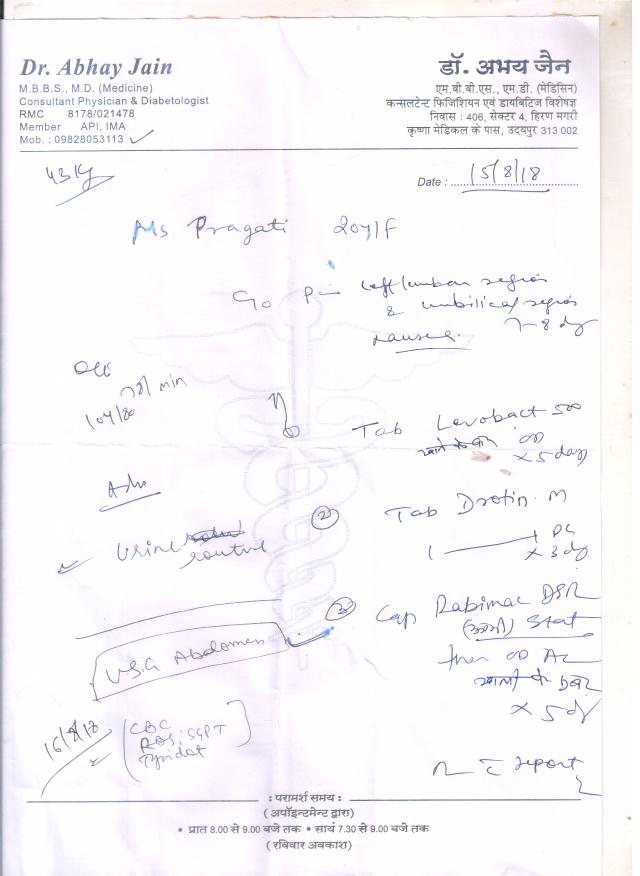 Dr. Abhay Jain
M.B.B.S., M.D. (Medicine)
Consultant Physician & Diabetologist
RMC 8178/021478
Member API, IMA
Mob. : 09828053113
डॉ. अभय जैन
एम.बी.बी.एस., एम.डी. (मेडिसिन)
कन्सलटेन्ट फिजिशियन एवं डायबिटिज विशेषज्ञ
निवास : 406, सेक्टर 4, हिरण मगरी
कृष्णा मेडिकल के पास, उदयपुर 313 002
43 kg
Date : 15/8/18
Ms. Pragati 20y/F
C/o Pain Left lumbar region
& umbilical region
nausea. 7-8 dy
O/E
78/min
104/80
Tab Levobact 500
OD
x 5 days
Adv
② Tab Drotin M
Urine routine
1 1 PC
x 3 dy
③ Cap Rabimac DSR
(अभी) Stat
U.S.G Abdomen
then OD AC
x 5 dy
16/8/18
CBC
RBS, SGPT
Typidot
report
: परामर्श समय :
(अपॉइन्टमेन्ट द्वारा)
• प्रात 8.00 से 9.00 बजे तक • सायं 7.30 से 9.00 बजे तक
(रविवार अवकाश)